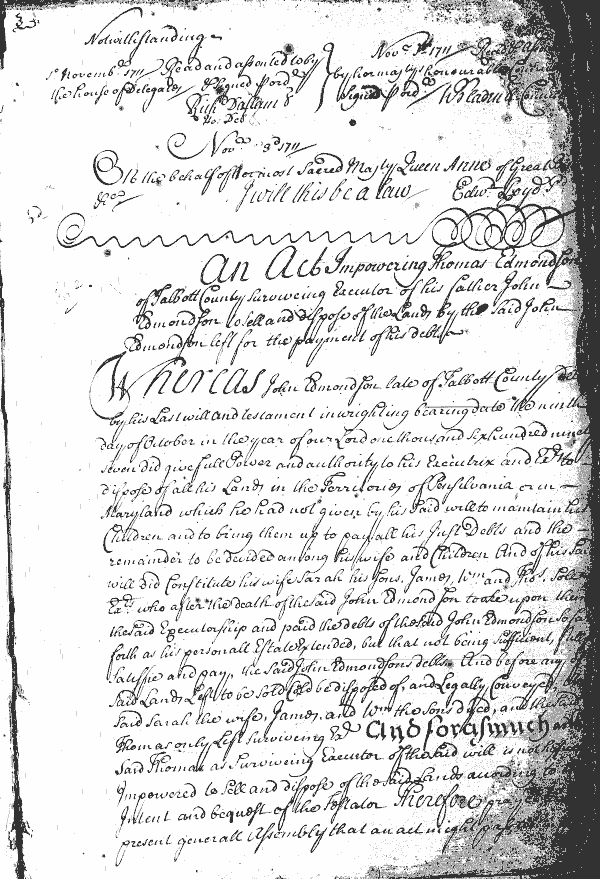 33
Notwithstanding
Novr 3d 1711 Read
1st Novembr 1711 Read and assented to by
by her majtys honourable
the house of Delegates Signed p ord
Signed p ord W Bladen Cl
Richd Dallam
Novr 3d 1711
On the behalf of her most Sacred Majty Queen Anne of Great
I will this be a law Edwd Lloyd
An Act Impowering Thomas Edmondson
of Talbott County Surviveing Executor of his father John
Edmondson to sell and dispose of the Lands by the said John
Edmondson left for the payment of his debts
Whereas John Edmondson late of Talbott County
by his Last will and testament in wrighting bearing date the ninth
day of October in the year of our Lord one thousand six hundred
seven did give full Power and authority to his Executrix and
dispose of all his Lands in the Territories of Pensilvania or in
Maryland which he had not given by his said will to maintain his
Children and to bring them up to pay all his Just Debts and the
remainder to be devided among his wife and Children And of his said
will did Constitute his wife Sarah his sons, James, Wm and Thos.
who after the death of the said John Edmondson to take upon them
the said Executorship and paid the debts of the said John Edmondson so far
forth as his personall Estate extended, but that not being sufficient,
satisfie and pay, the said John Edmondsons debts. And before any of
said Lands Left to be sold Cold be disposed of, and Legally Conveyed,
said Sarah the wife, James, and Wm the sons dyed, and the said
Thomas only Left surviveing And forasmuch
said Thomas as surviveing Executor of the said will is not
impowered to sell and dispose of the said Lands according to
Intent and bequest of the Testator Therefore prays
present generall Assembly that an act might pass